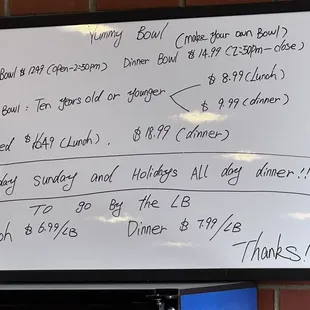 Yummy Bowl (make your own Bowl)
Bowl $ 12.49 (open-2:30pm) Dinner Bowl $ 14.99 (2:30pm-close)
Bowl : Ten years old or younger
$ 8.99 (Lunch)
$ 9.99 (dinner)
$ 16.49 (Lunch). $ 18.99 (dinner)
Sunday and Holidays All day dinner!!
To go By the LB
$ 6.99/LB Dinner $ 7.99/LB
Thanks!